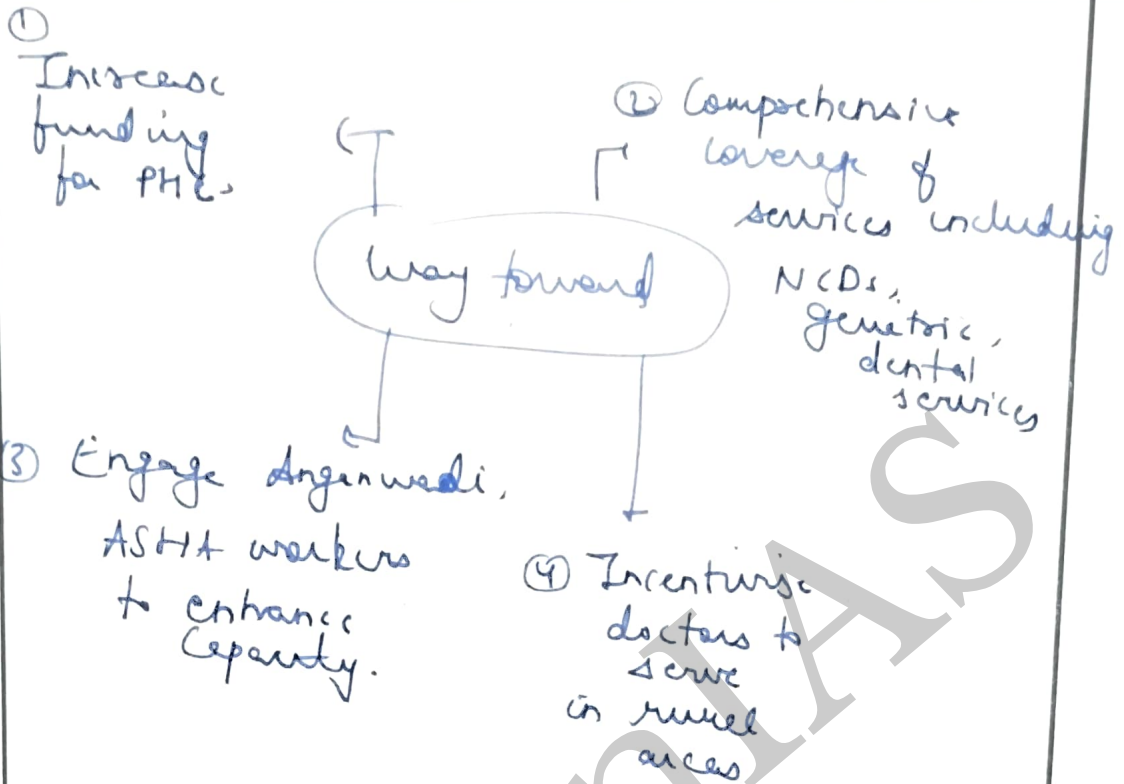 ①
Increase
funding
for PHCs
② Comprehensive
coverage of
services including
NCDs,
geriatric,
dental
services
Way forward
③ Engage Anganwadi,
ASHA workers
to enhance
Capacity.
④ Incentivise
doctors to
serve
in rural
areas
IAS